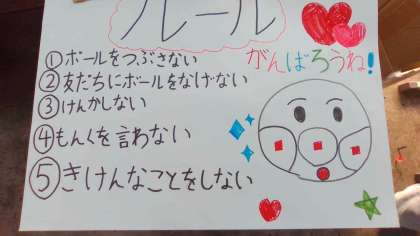 ルール
①ボールをつぶさない
がんばろうね!
②友だちにボールをなげない
③けんかしない
④もんくを言わない
⑤きけんなことをしない